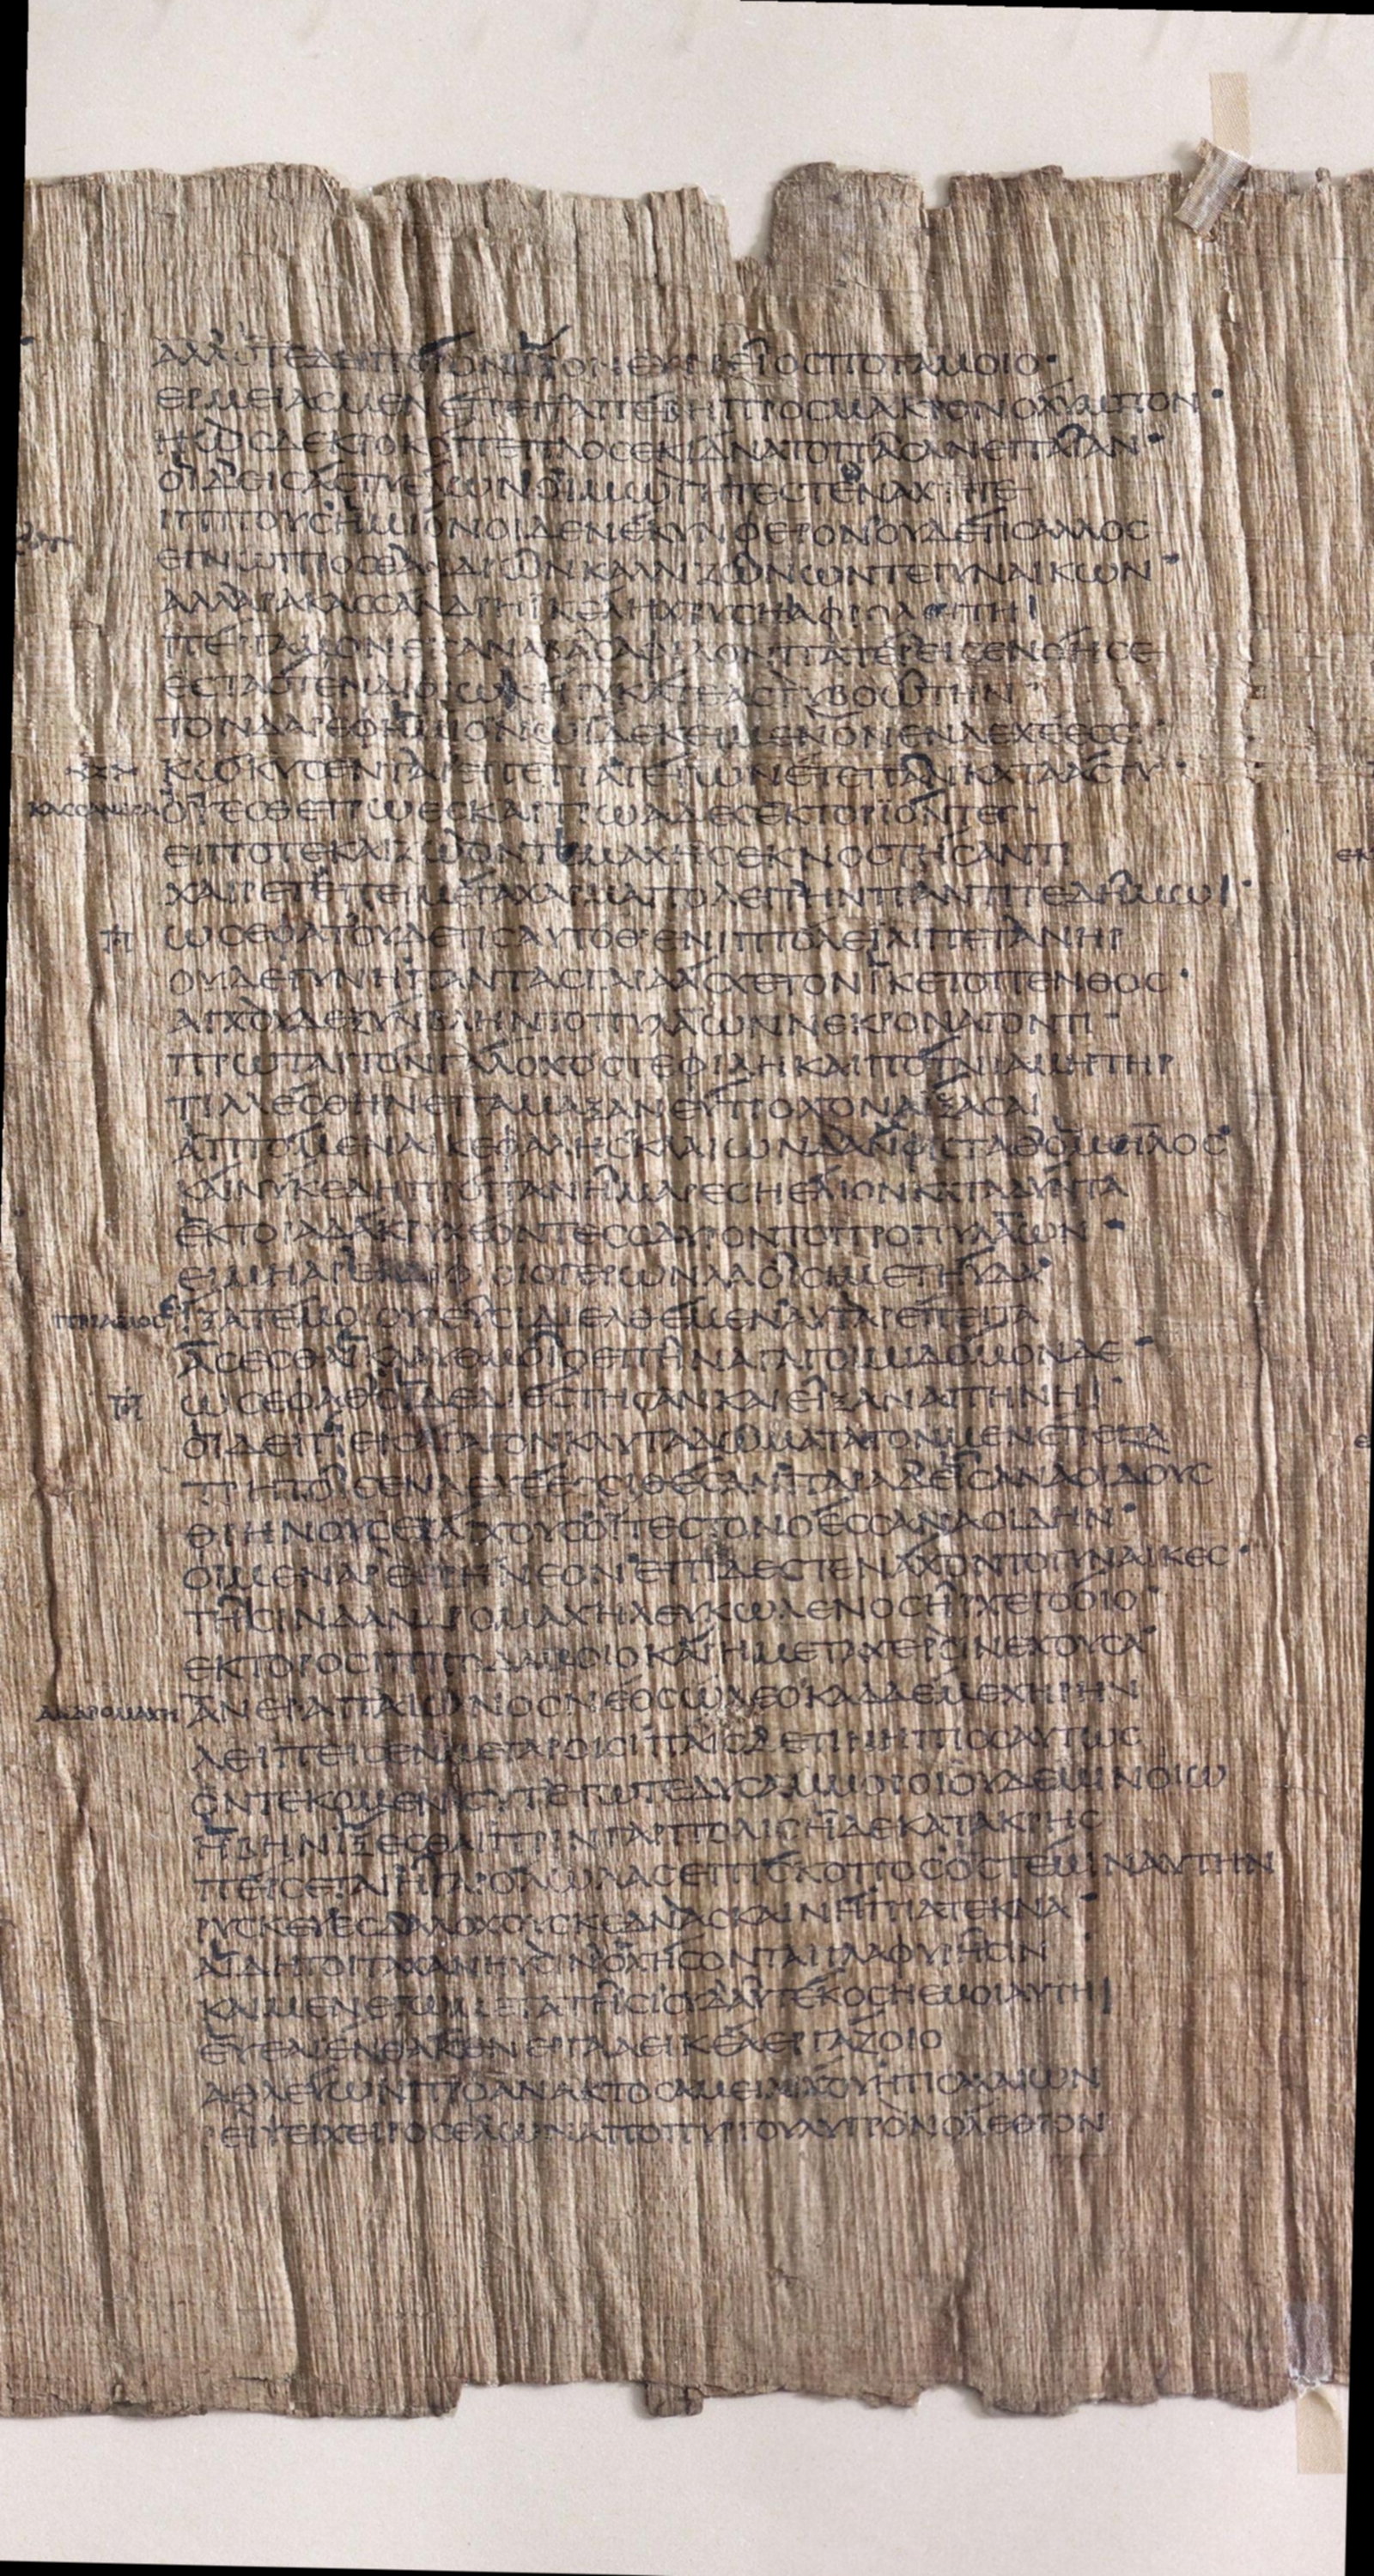 ΑΛΛΟΤΕΔΗΠΟΡΟΝΙΞΟΝΕΥΡΡΕΙΟϹΠΟΤΑΜΟΙΟ·
ΕΡΜΕΙΑϹΜΕΝΕΠΕΙΤΑΠΕΒΗΠΡΟϹΜΑΚΡΟΝΟΛΥΜΠΟΝ·
ΗΩϹΔΕΚΡΟΚΟΠΕΠΛΟϹΕΚΙΔΝΑΤΟΠΑϹΑΝΕΠΑΙΑΝ·
ΟΙΔΕΙϹΑϹΤΥΕΛΩΝΟΙΜΩΓΗΤΕϹΤΕΝΑΧΗΤΕ
ΙΠΠΟΥϹΗΜΙΟΝΟΙΔΕΝΕΚΥΝΦΕΡΟΝΟΥΔΕΤΙϹΑΛΛΟϹ
ΕΓΝΩΠΡΟϹΘΑΝΔΡΩΝΚΑΛΛΙΖΩΝΩΝΤΕΓΥΝΑΙΚΩΝ·
ΑΛΛΑΡΑΚΑϹϹΑΝΔΡΗΪΚΕΛΗΧΡΥϹΗΑΦΡΟΔΕΙΤΗΙ
ΠΕΡΓΑΜΟΝΕΙϹΑΝΑΒΑϹΑΦΙΛΟΝΠΑΤΕΡΕΙϹΕΝΟΗϹΕ
ΕϹΤΑΟΤΕΝΔΙΦΡΩΚΗΡΥΚΑΤΕΑϹΤΥΒΟΩΤΗΝ·
ΤΟΝΔΑΡΕΦΗΜΙΟΝΩΝΙΔΕΚΕΙΜΕΝΟΝΕΝΛΕΧΕΕϹϹΙ·
ΚΩΚΥϹΕΝΤΑΡΕΠΕΙΤΑΓΕΓΩΝΕΤΕΠΑΝΚΑΤΑΑϹΤΥ·
ΚΑϹϹΑΝΔΡΑ ΟΨΕϹΘΕΤΡΩΕϹΚΑΙΤΡΩΑΔΕϹΕΚΤΟΡΪΟΝΤΕϹ·
ΕΙΠΟΤΕΚΑΙΖΩΟΝΤΙΜΑΧΗϹΕΚΝΟϹΤΗϹΑΝΤΙ
ΧΑΙΡΕΤΕΠΕΙΜΕΓΑΧΑΡΜΑΠΟΛΕΙΤΗΝΠΑΝΤΙΤΕΔΗΜΩΙ·
ΩϹΕΦΑΤΟΥΔΕΤΙϹΑΥΤΟΘΕΝΙΠΤΟΛΕΪΛΙΠΕΤΑΝΗΡ
ΟΥΔΕΓΥΝΗΠΑΝΤΑϹΓΑΡΑΑϹΧΕΤΟΝΪΚΕΤΟΠΕΝΘΟϹ·
ΑΓΧΟΥΔΕΞΥΝΒΛΗΝΤΟΠΥΛΑΩΝΝΕΚΡΟΝΑΓΟΝΤΙ·
ΠΡΩΤΑΙΤΟΝΓΑΛΟΧΟϹΤΕΦΙΛΗΚΑΙΠΟΤΝΙΑΜΗΤΗΡ
ΤΙΛΛΕϹΘΗΝΕΠΑΜΑΞΑΝΕΥΤΡΟΧΟΝΑΪΞΑϹΑΙ
ΑΠΤΟΜΕΝΑΙΚΕΦΑΛΗϹΚΛΑΙΩΝΔΑΝΦΙϹΤΑΘΟΜΕΙΛΟϹ
ΚΑΙΝΥΚΕΔΗΠΡΟΠΑΝΗΜΑΡΕϹΗΕΛΙΟΝΚΑΤΑΔΥΝΤΑ
ΕΚΤΟΡΑΔΑΚΡΥΧΕΟΝΤΕϹΟΔΥΡΟΝΤΟΠΡΟΠΥΛΑΩΝ·
ΕΙΜΗΑΡΕΚΔΙΦΡΟΙΟΓΕΡΩΝΛΑΟΙϹΙΜΕΤΗΥΔΑ·
ΠΡΙΑΜΟϹ ΕΙΞΑΤΕΜΟΙΟΥΡΕΥϹΙΔΙΕΛΘΕΜΕΝΑΥΤΑΡΕΠΕΙΤΑ
ΑϹΕϹΘΑΙΚΛΑΥΘΜΟΙΟΕΠΗΝΑΓΑΓΟΙΜΙΔΟΜΟΝΔΕ·
ΩϹΕΦΑΘΟΙΔΕΔΙΕϹΤΗϹΑΝΚΑΙΕΙΞΑΝΑΠΗΝΗΙ
ΟΙΔΕΠΕΙΕΙϹΑΓΑΓΟΝΚΛΥΤΑΔΩΜΑΤΑΤΟΝΜΕΝΕΠΕΙΤΑ
ΤΡΗΤΟΙϹΕΝΛΕΧΕΕϹϹΙΘΕϹΑΝΠΑΡΑΔΕΙϹΑΝΑΟΙΔΟΥϹ
ΘΡΗΝΟΥϹΕΞΑΡΧΟΥϹΟΙΤΕϹΤΟΝΟΕϹϹΑΝΑΟΙΔΗΝ·
ΟΙΜΕΝΑΡΕΘΡΗΝΕΟΝΕΠΙΔΕϹΤΕΝΑΧΟΝΤΟΓΥΝΑΙΚΕϹ·
ΤΗϹΙΝΔΑΝΔΡΟΜΑΧΗΛΕΥΚΩΛΕΝΟϹΗΡΧΕΓΟΟΙΟ·
ΕΚΤΟΡΟϹΙΠΠΟΔΑΜΟΙΟΚΑΡΗΜΕΤΑΧΕΡϹΙΝΕΧΟΥϹΑ·
ΑΝΔΡΟΜΑΧΗ ΑΝΕΡΑΠΑΙΩΝΟϹΝΕΟϹΩΛΕΟΚΑΔΔΕΜΕΧΗΡΗΝ
ΛΕΙΠΕΙϹΕΝΜΕΓΑΡΟΙϹΙΠΑΙϹΔΕΤΙΝΗΠΙΟϹΑΥΤΩϹ
ΟΝΤΕΚΟΜΕΝϹΥΤΕΓΩΤΕΔΥϹΑΜΜΟΡΟΙΟΥΔΕΜΙΝΟΙΩ
ΗΒΗΝΙΞΕϹΘΑΙΠΡΙΝΓΑΡΠΟΛΙϹΗΔΕΚΑΤΑΚΡΗϹ
ΠΕΡϹΕΤΑΙΗΓΑΡΟΛΩΛΑϹΕΠΙϹΚΟΠΟϹΟϹΤΕΜΙΝΑΥΤΗΝ
ΡΥϹΚΕΥΕϹΔΑΛΟΧΟΥϹΚΕΔΝΑϹΚΑΙΝΗΠΙΑΤΕΚΝΑ·
ΑΙΔΗΤΟΙΤΑΧΑΝΗΥϹΙΝΟΧΗϹΟΝΤΑΙΓΛΑΦΥΡΗϹΙΝ
ΚΑΙΜΕΝΕΓΩΜΕΤΑΤΗϹΙϹΥΔΑΥΤΕΚΟϹΗΕΜΟΙΑΥΤΗΙ
ΕΨΕΑΙΕΝΘΑΚΕΝΕΡΓΑΑΕΙΚΕΑΕΡΓΑΖΟΙΟ
ΑΘΛΕΥΩΝΠΡΟΑΝΑΚΤΟϹΑΜΕΙΛΙΧΟΥΗΤΙϹΑΧΑΙΩΝ
ΡΕΙΨΕΙΧΕΙΡΟϹΕΛΩΝΑΠΟΠΥΡΓΟΥΛΥΓΡΟΝΟΛΕΘΡΟΝ